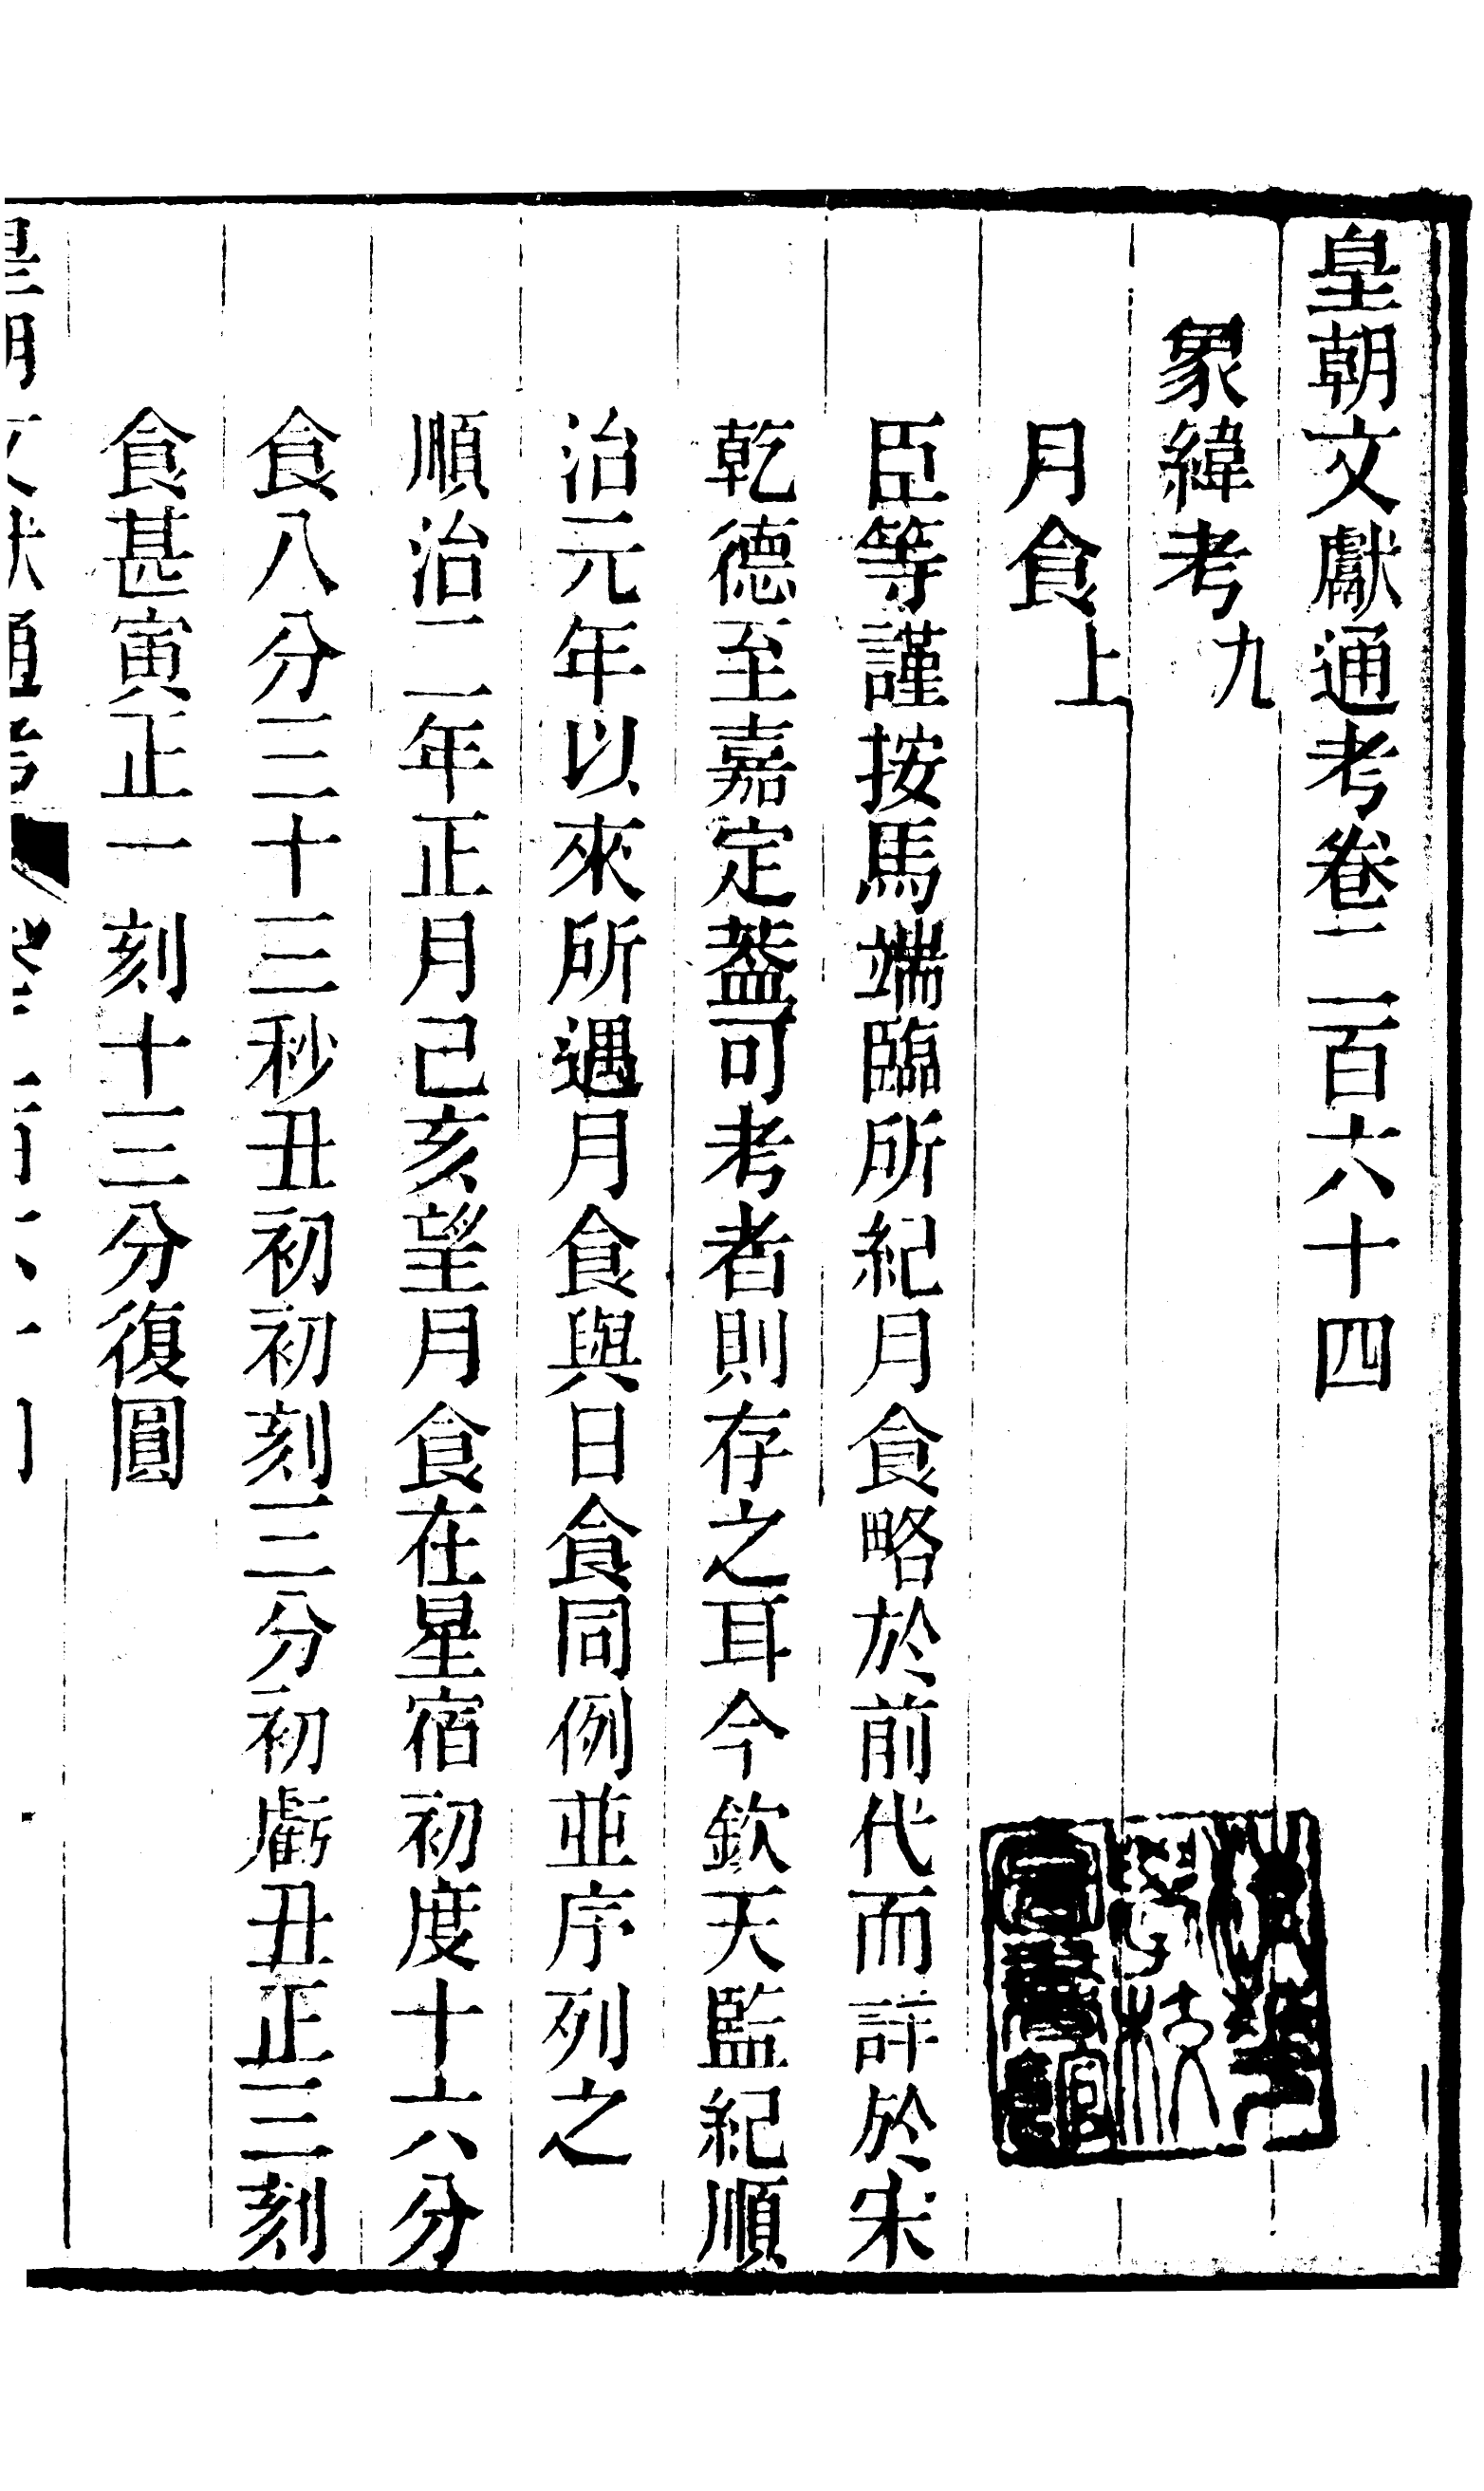 皇朝文獻通考卷二百六十四
象緯考九
月食上
臣等謹按馬端臨所紀月食略於前代而詳於宋
乾德至嘉定葢可考者則存之耳今欽天監紀順
治元年以來所遇月食與日食同例並序列之
順治二年正月己亥望月食在星宿初度十六分
食八分三十三秒丑初初刻三分初虧丑正三刻
食甚寅正一刻十三分復圓